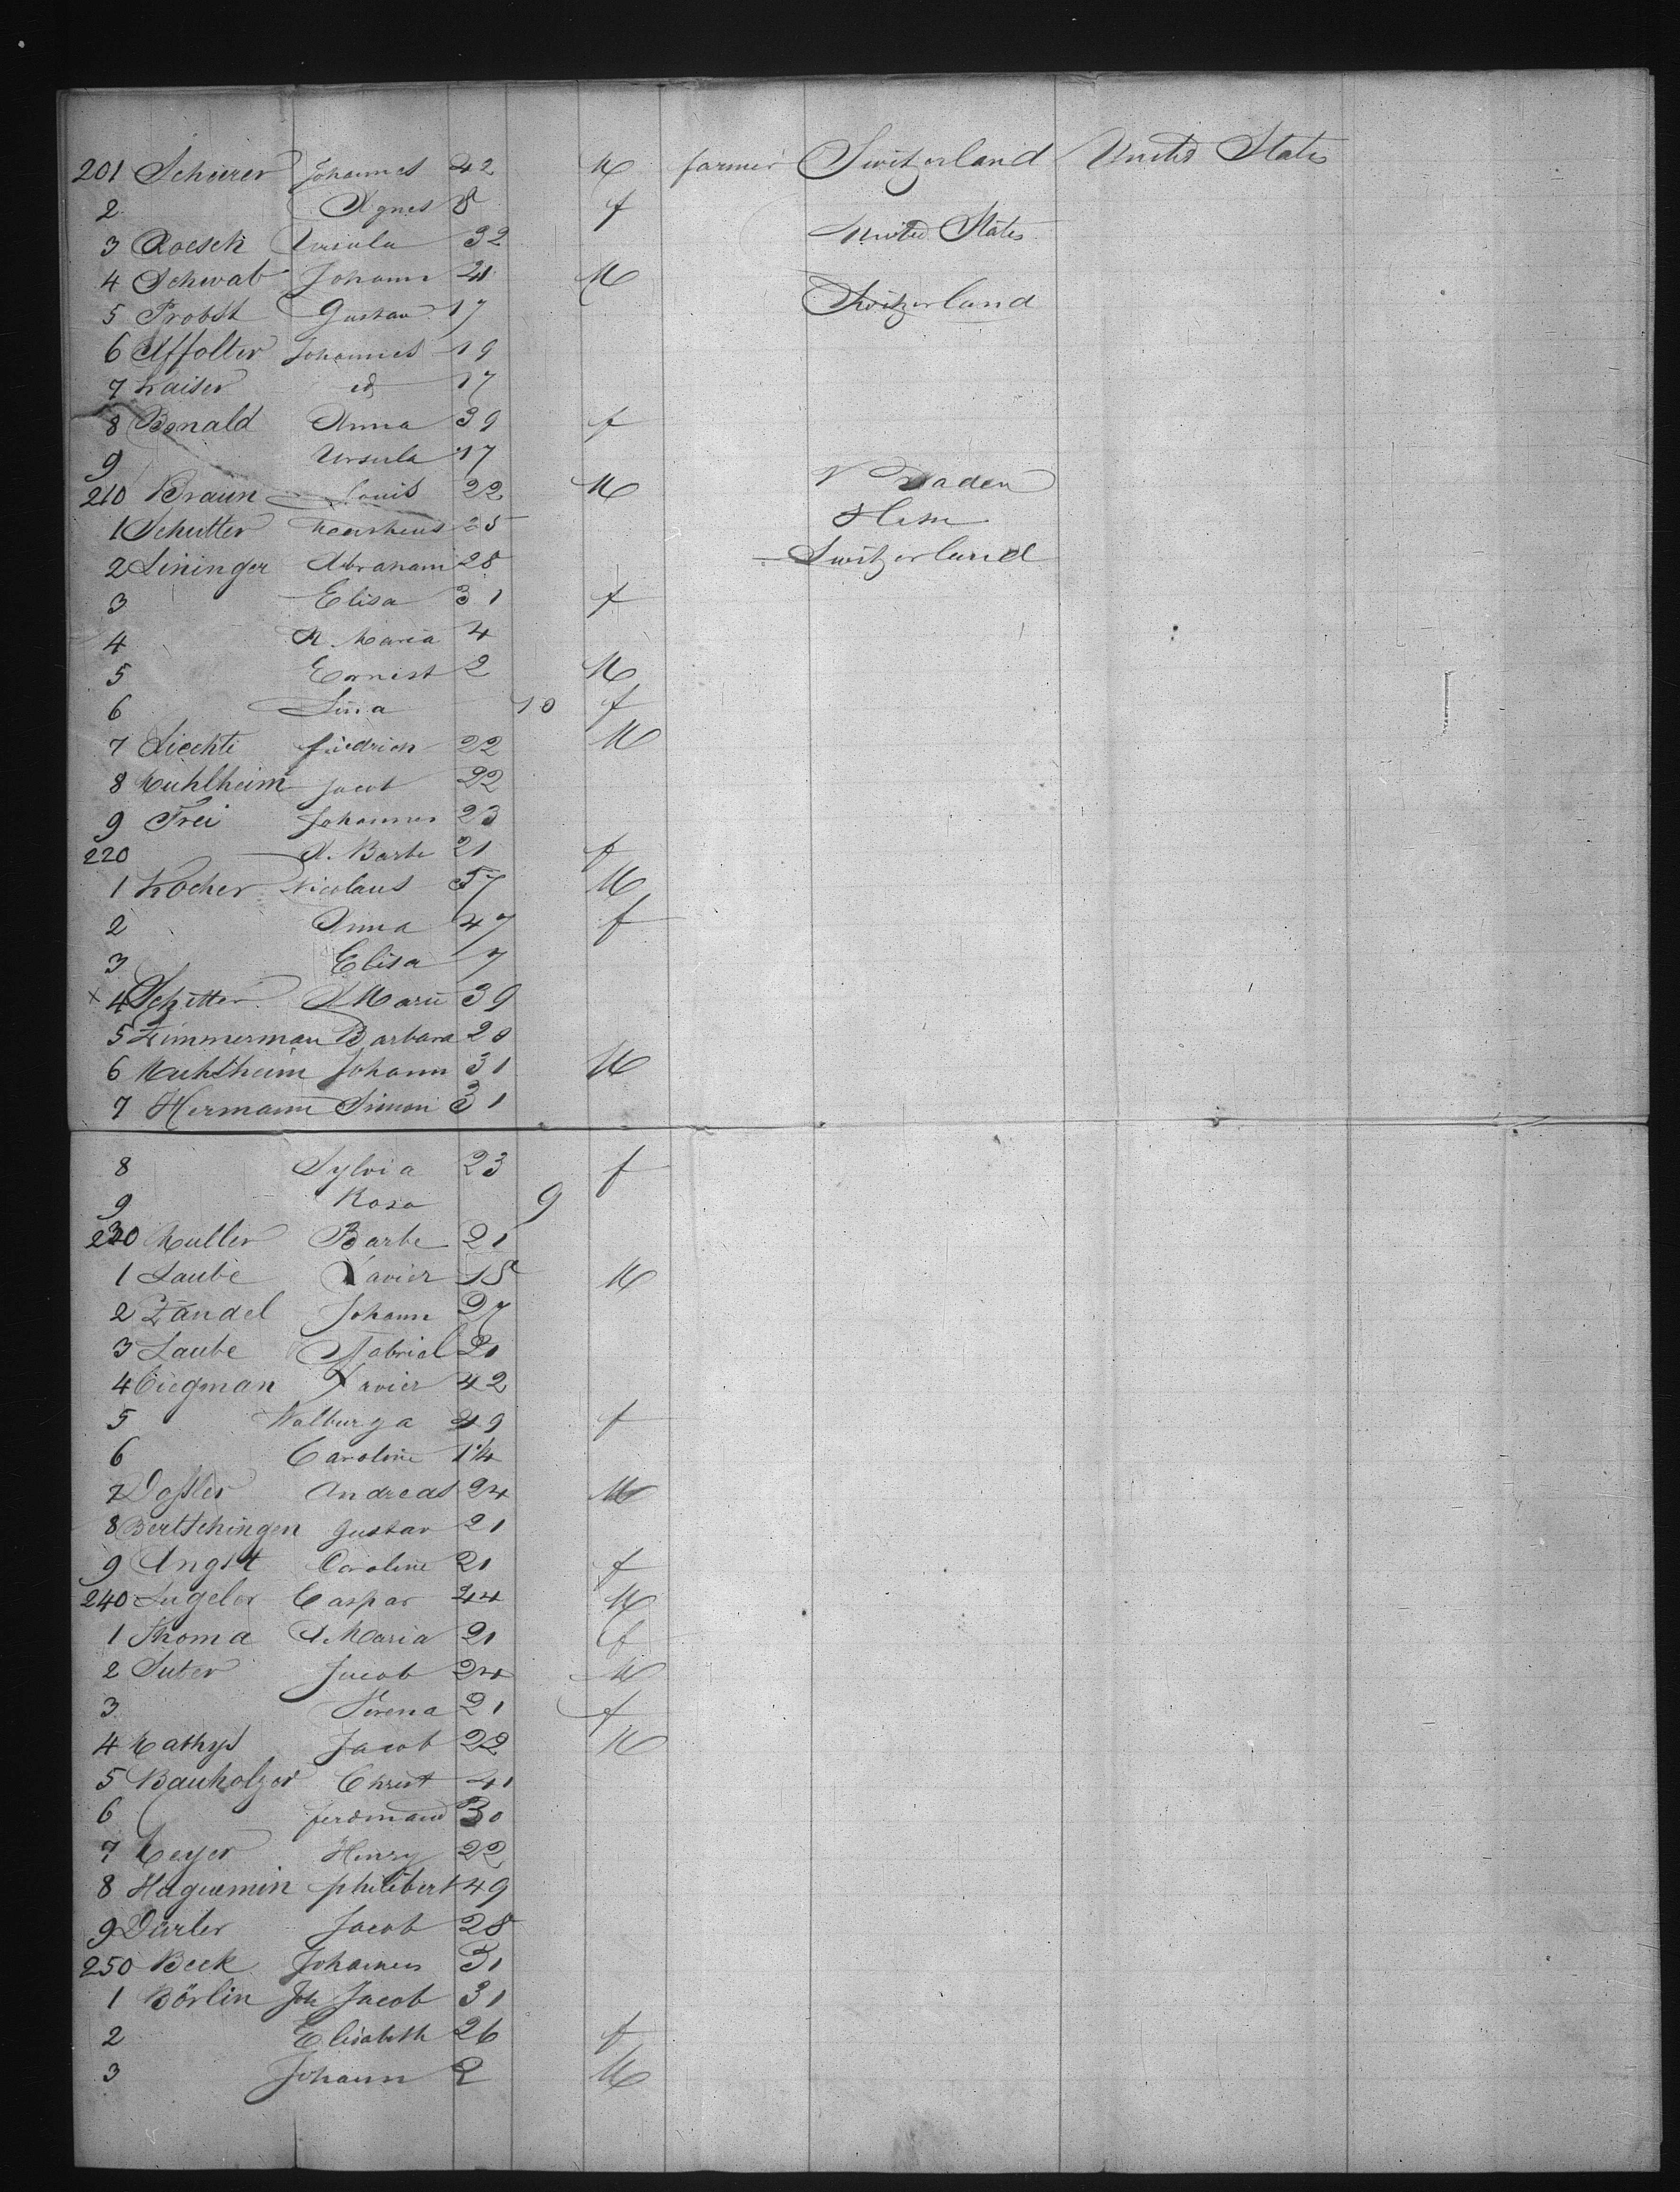 201 Scheerer Johannes 42 M farmer Switzerland United States
2 Agnes 8 f
3 Roesch Ursula 32 United States
4 Schwab Johann 21 M
5 Probst Gustav 17 Switzerland
6 Affolter Johannes 19
7 Kaiser id 17
8 Bonald Anna 39 f
9 Ursula 17
210 Braun Louis 22 M Baden
1 Schutter 25 Hesse
2 Lininger Abraham 28 Switzerland
3 Elisa 31 f
4 A. Maria 4
5 Ernest 2 M
6 Lina 10 f
7 Liechti friedrich 22 M
8 Muhlheim Jacob 22
9 Frei Johannes 23
220 A. Barbe 21 f
1 Kocher Nicolaus 57 M
2 Anna 47 f
3 Elisa 7
x 4 Schitter A Marie 39
5 Zimmerman Barbara 20
6 Muhlheim Johann 31 M
7 Hermann Simon 31
8 Sylvia 23 f
9 Rosa 9
230 Muller Barbe 21
1 Laube Xavier 18 M
2 Zandel Johann 27
3 Laube Gabriel 21
4 Xavier 42
5 Walburga 49 f
6 Caroline 14
7 Andreas 24 M
8 Bertschingen Gustav 21
9 Angst Caroline 21 f
240 Lugeler Caspar 44 M
1 Thoma A. Maria 21 f
2 Suter Jacob 24 M
3 Verena 21 f
4 Mathys Jacob 22 M
5 Bauholzer Christ 41
6 ferdinand 30
7 Meyer Henry 22
8 Huguemin philibert 49
9 Dürler Jacob 28
250 Beck Johannes 31
1 Börlin Joh Jacob 31
2 Elisabeth 26 f
3 Johann 2 M